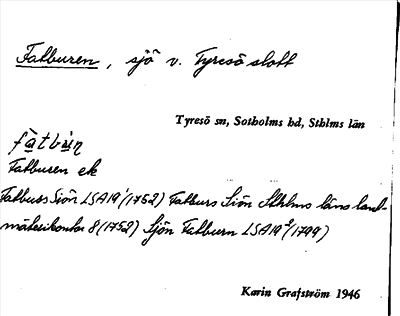 Fatburen, sjö v. Tyresö slott
Tyresö sn, Sotholms hd, Sthlms län
fàtbù̀n
Fatburen ek
Fatburs Siön LSA19¹(1752) Fatburs Siön Sthlms läns land-
mäterikontor 8(1752) Sjön Fatburn LSA19²(1799)
Karin Grafström 1946